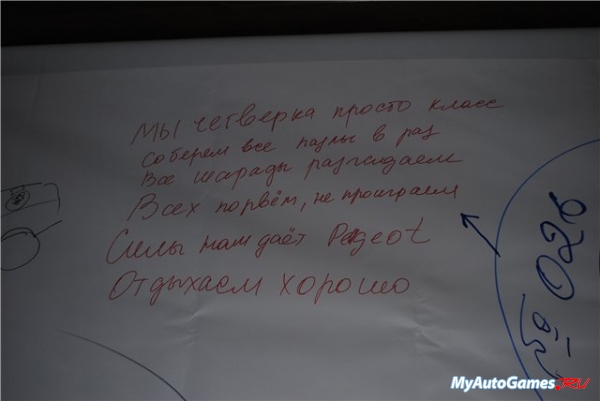 Мы четверка просто класс
Соберем все пазлы в раз
Все шарады разгадаем
Всех порвём, не проиграем
Силы нам даёт Peugeot
Отдыхаем хорошо
№ 026
MyAutoGames.RU